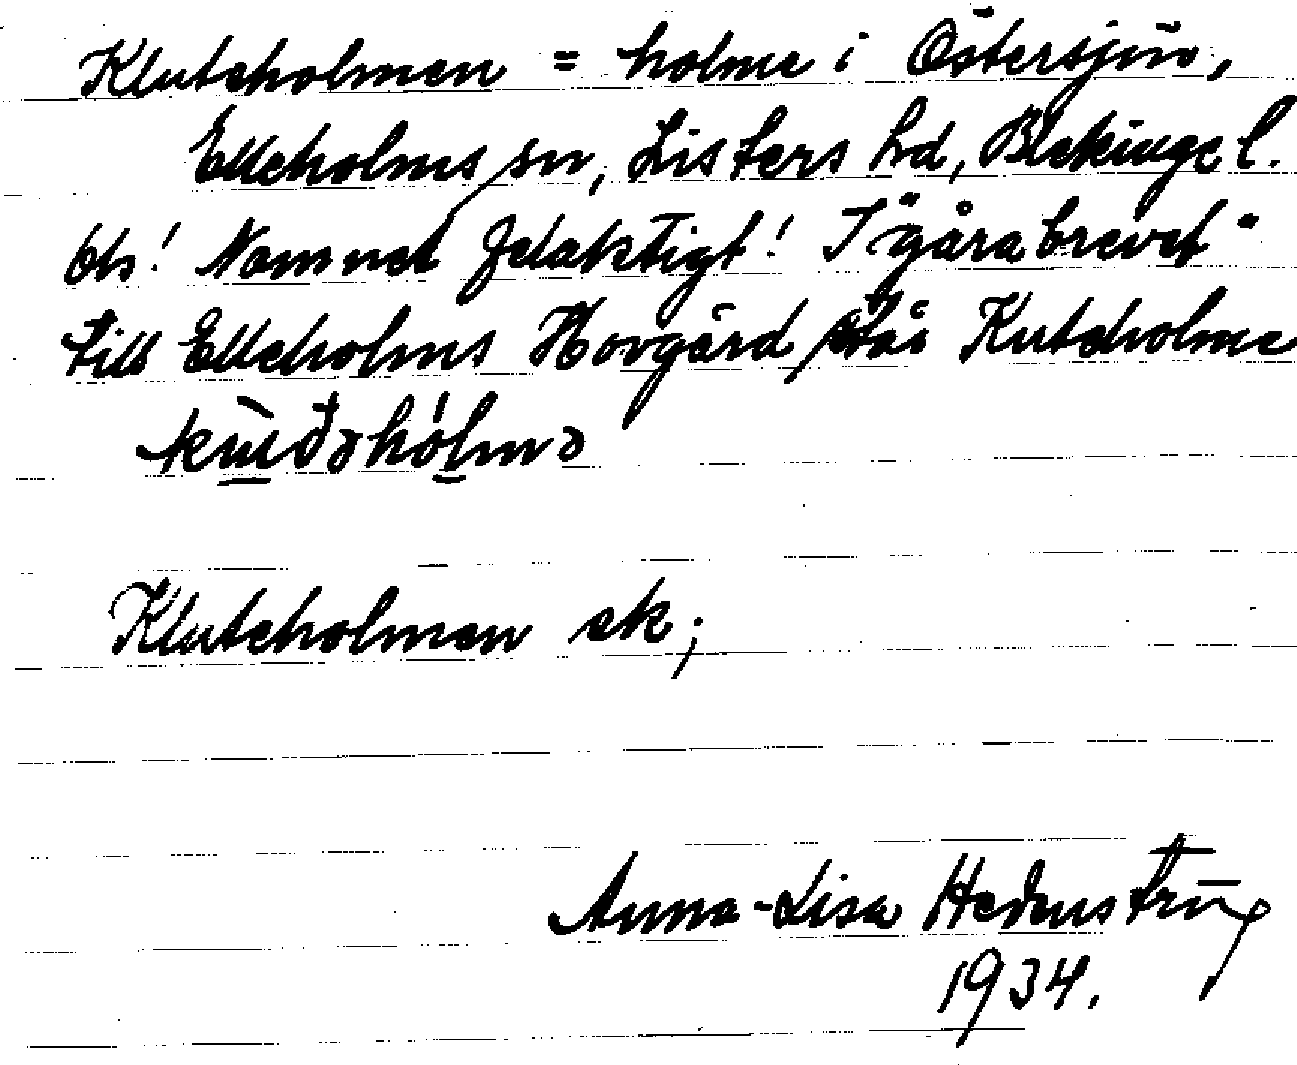 Kluteholmen = holme i Östersjön,
Elleholms sn, Listers hd, Blekinge l.
Obs! Namnet felaktigt! I "gåvobrevet"
till Elleholms Hovgård står Kuteholme
Kluteholmen ek;
Anna-Lisa Hedenström
1934.